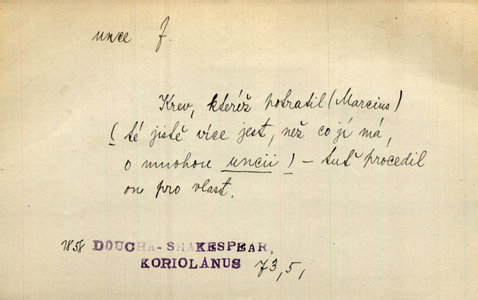 unce f.
Krev, kteréž potratil (Marcius)
(té jistě více jest, než co jí má,
o mnohou uncii) – tuť procedil
on pro vlast.
1858 DOUCHA-SHAKESPEAR,
KORIOLANUS 73,5,